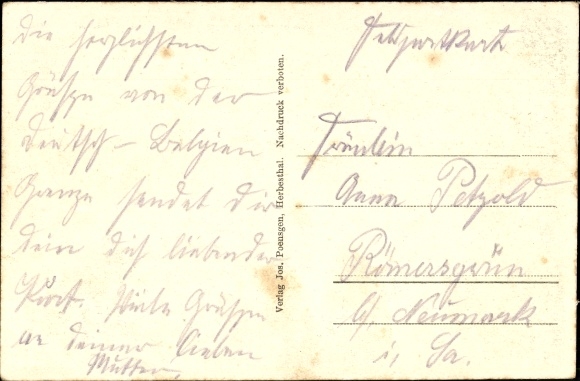 Die herzlichsten
Grüße von der
Deutsch-Belgien
Grenze sendet dir
dein dich liebender
Viele Grüße
an deiner lieben
Mutter.
Verlag Jos. Poensgen, Herbesthal. Nachdruck verboten.
Feldpostkarte
Fräulein
Anna Petzold
Römersgrün
b/ Neumark
i. Sa.